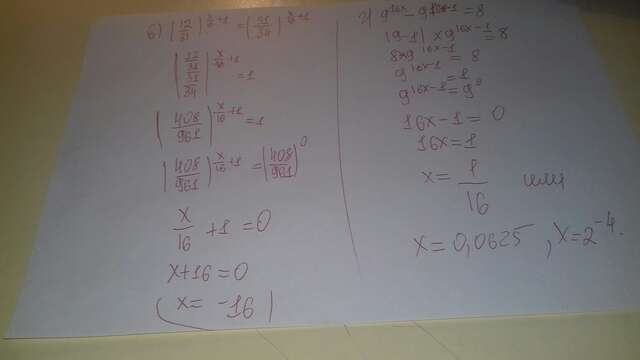 б) (12/31)^(x/16+1) = (31/34)^(x/16+1)
((12/31)/(31/34))^(x/16+1) = 1
(408/961)^(x/16+1) = 1
(408/961)^(x/16+1) = (408/961)^0
x/16 + 1 = 0
x+16=0
x= -16
г) 9^(16x) - 9^(16x-1) = 8
(9-1) × 9^(16x-1) = 8
8×9^(16x-1) = 8
9^(16x-1) = 1
9^(16x-1) = 9^0
16x-1=0
16x=1
x= 1/16 или
x=0,0625, x=2^(-4).